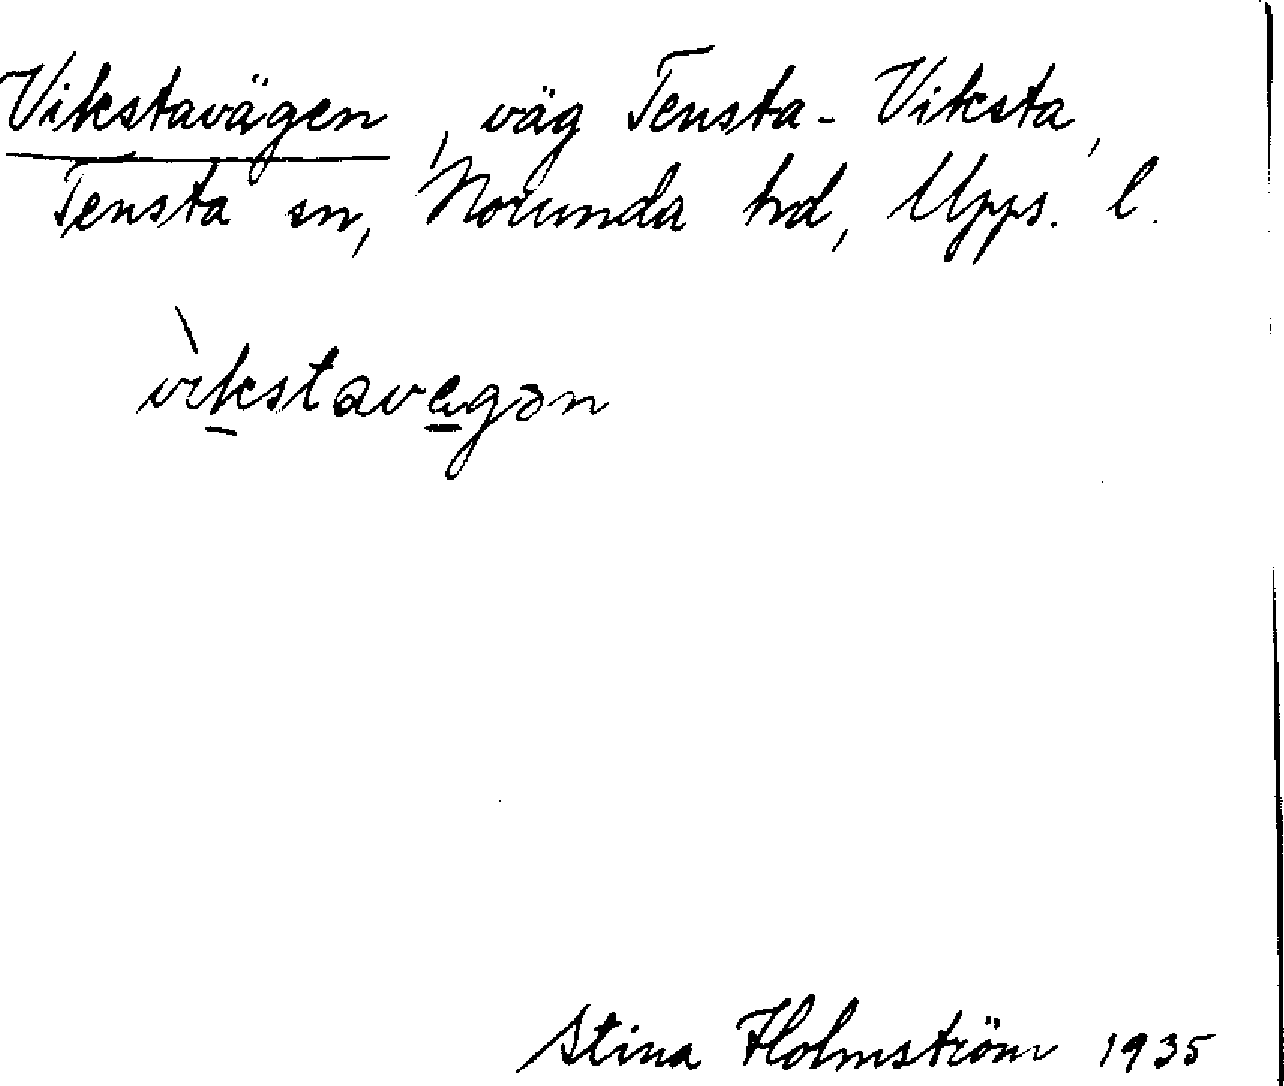 Vikstavägen, väg Tensta-Viksta,
Tensta sn, Norunda hd, Upps. l.
vìkstavegən
Stina Holmström 1935